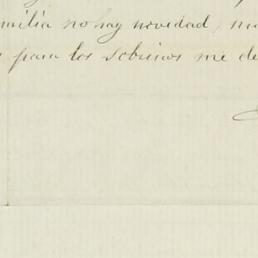 milia no hay novedad, 
para los sobrinos me de